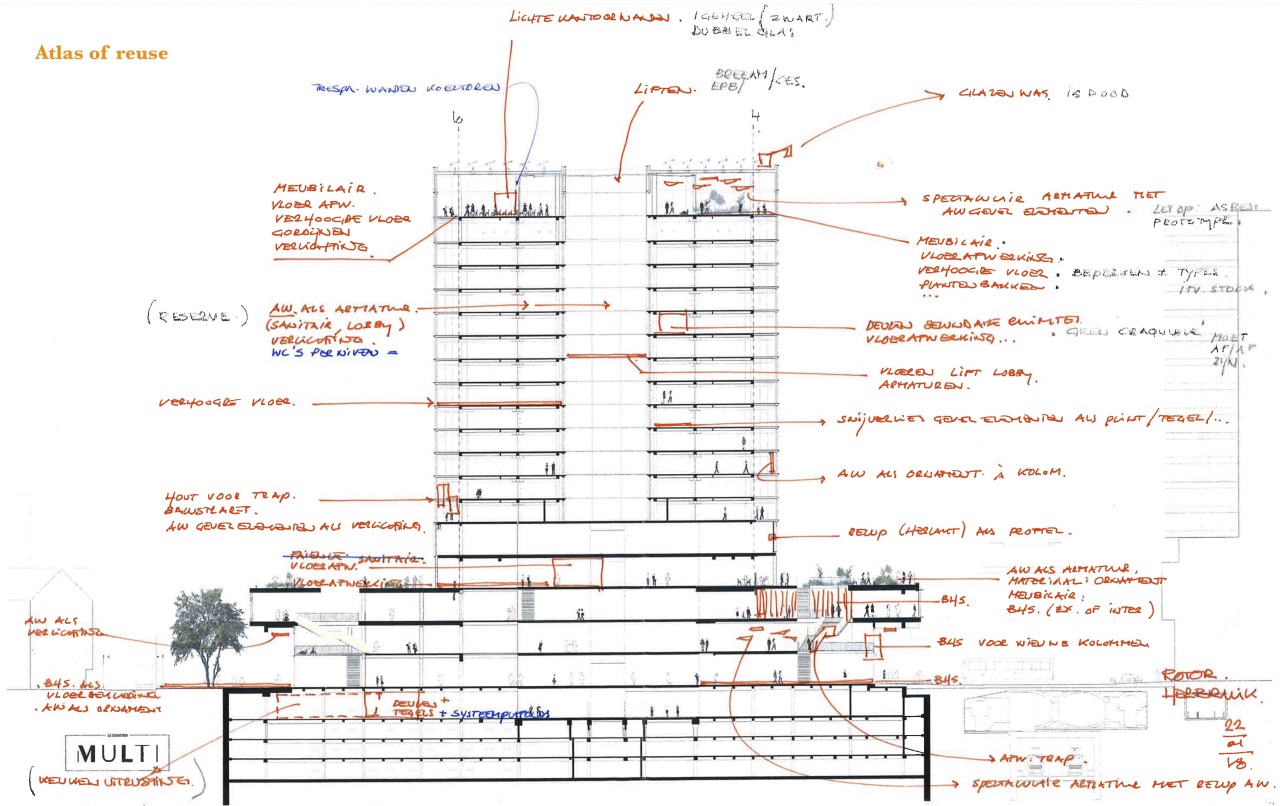 LICHTE KANTOORWANDEN. 1 GEHEEL (ZWART.)
DUBBEL GLAS
Atlas of reuse
TRESPA-WANDEN KOKTOREN
LIFTEN.
BREEAM/CES.
EPB/
GLAZENWAS. IS DOOD
6
4
MEUBILAIR.
VLOER AFW.
VERHOOGDE VLOER
GORDIJNEN
VERLICHTING.
SPECTACULAIR ARMATUUR MET
AW GEVEL ELEMENTEN.
LET OP: ASBEST
PROTOTYPE.
MEUBILAIR.
VLOERAFWERKING.
VERHOOGDE VLOER. BEPERKEN + TYPES
PLANTENBAKKEN.
...
INV. STOCK.
(RESERVE.)
AW. ALS ARMATUUR.
(SANITAIR, LOBBY)
VERLICHTING.
WC'S PER NIVEAU =
DEUREN SECUNDAIRE RUIMTES
VLOERAFWERKING...
GEEN CRAQUELE'
MOET
AF/AF
ZYN.
VLOEREN LIFT LOBBY.
ARMATUREN.
VERHOOGDE VLOER.
SNIJVERLIES GEVEL ELEMENTEN ALS PLINT/TEGEL/...
AW ALS ORNAMENT. À KOLOM.
HOUT VOOR TRAP.
BALUSTRADE.
AW GEVEL ELEMENTEN ALS VERLICHTING.
RELUP (HERLAKT) ALS PROFIEL.
FAIENCE SANITAIR.
VLOERAFW.
VLOERAFWERKING
AW ALS ARMATUUR,
MATERIAAL: ORNAMENT
MEUBILAIR:
B45. (EX. OF INTER)
B45.
AW ALS
VERLICHTING
B45 VOOR NIEUWE KOLOMMEN
B45. ALS
VLOERBEKLEDING
. AW ALS ORNAMENT
B45.
ROTOR.
DEUREN +
TEGELS + SYSTEEMPLAFONDS
22
01
18.
DE BROUCKÈRE
MULTI
(KEUKEN UITRUSTING.)
AFW. TRAP.
SPECTACULAIR ARMATUUR MET RELUP AW.